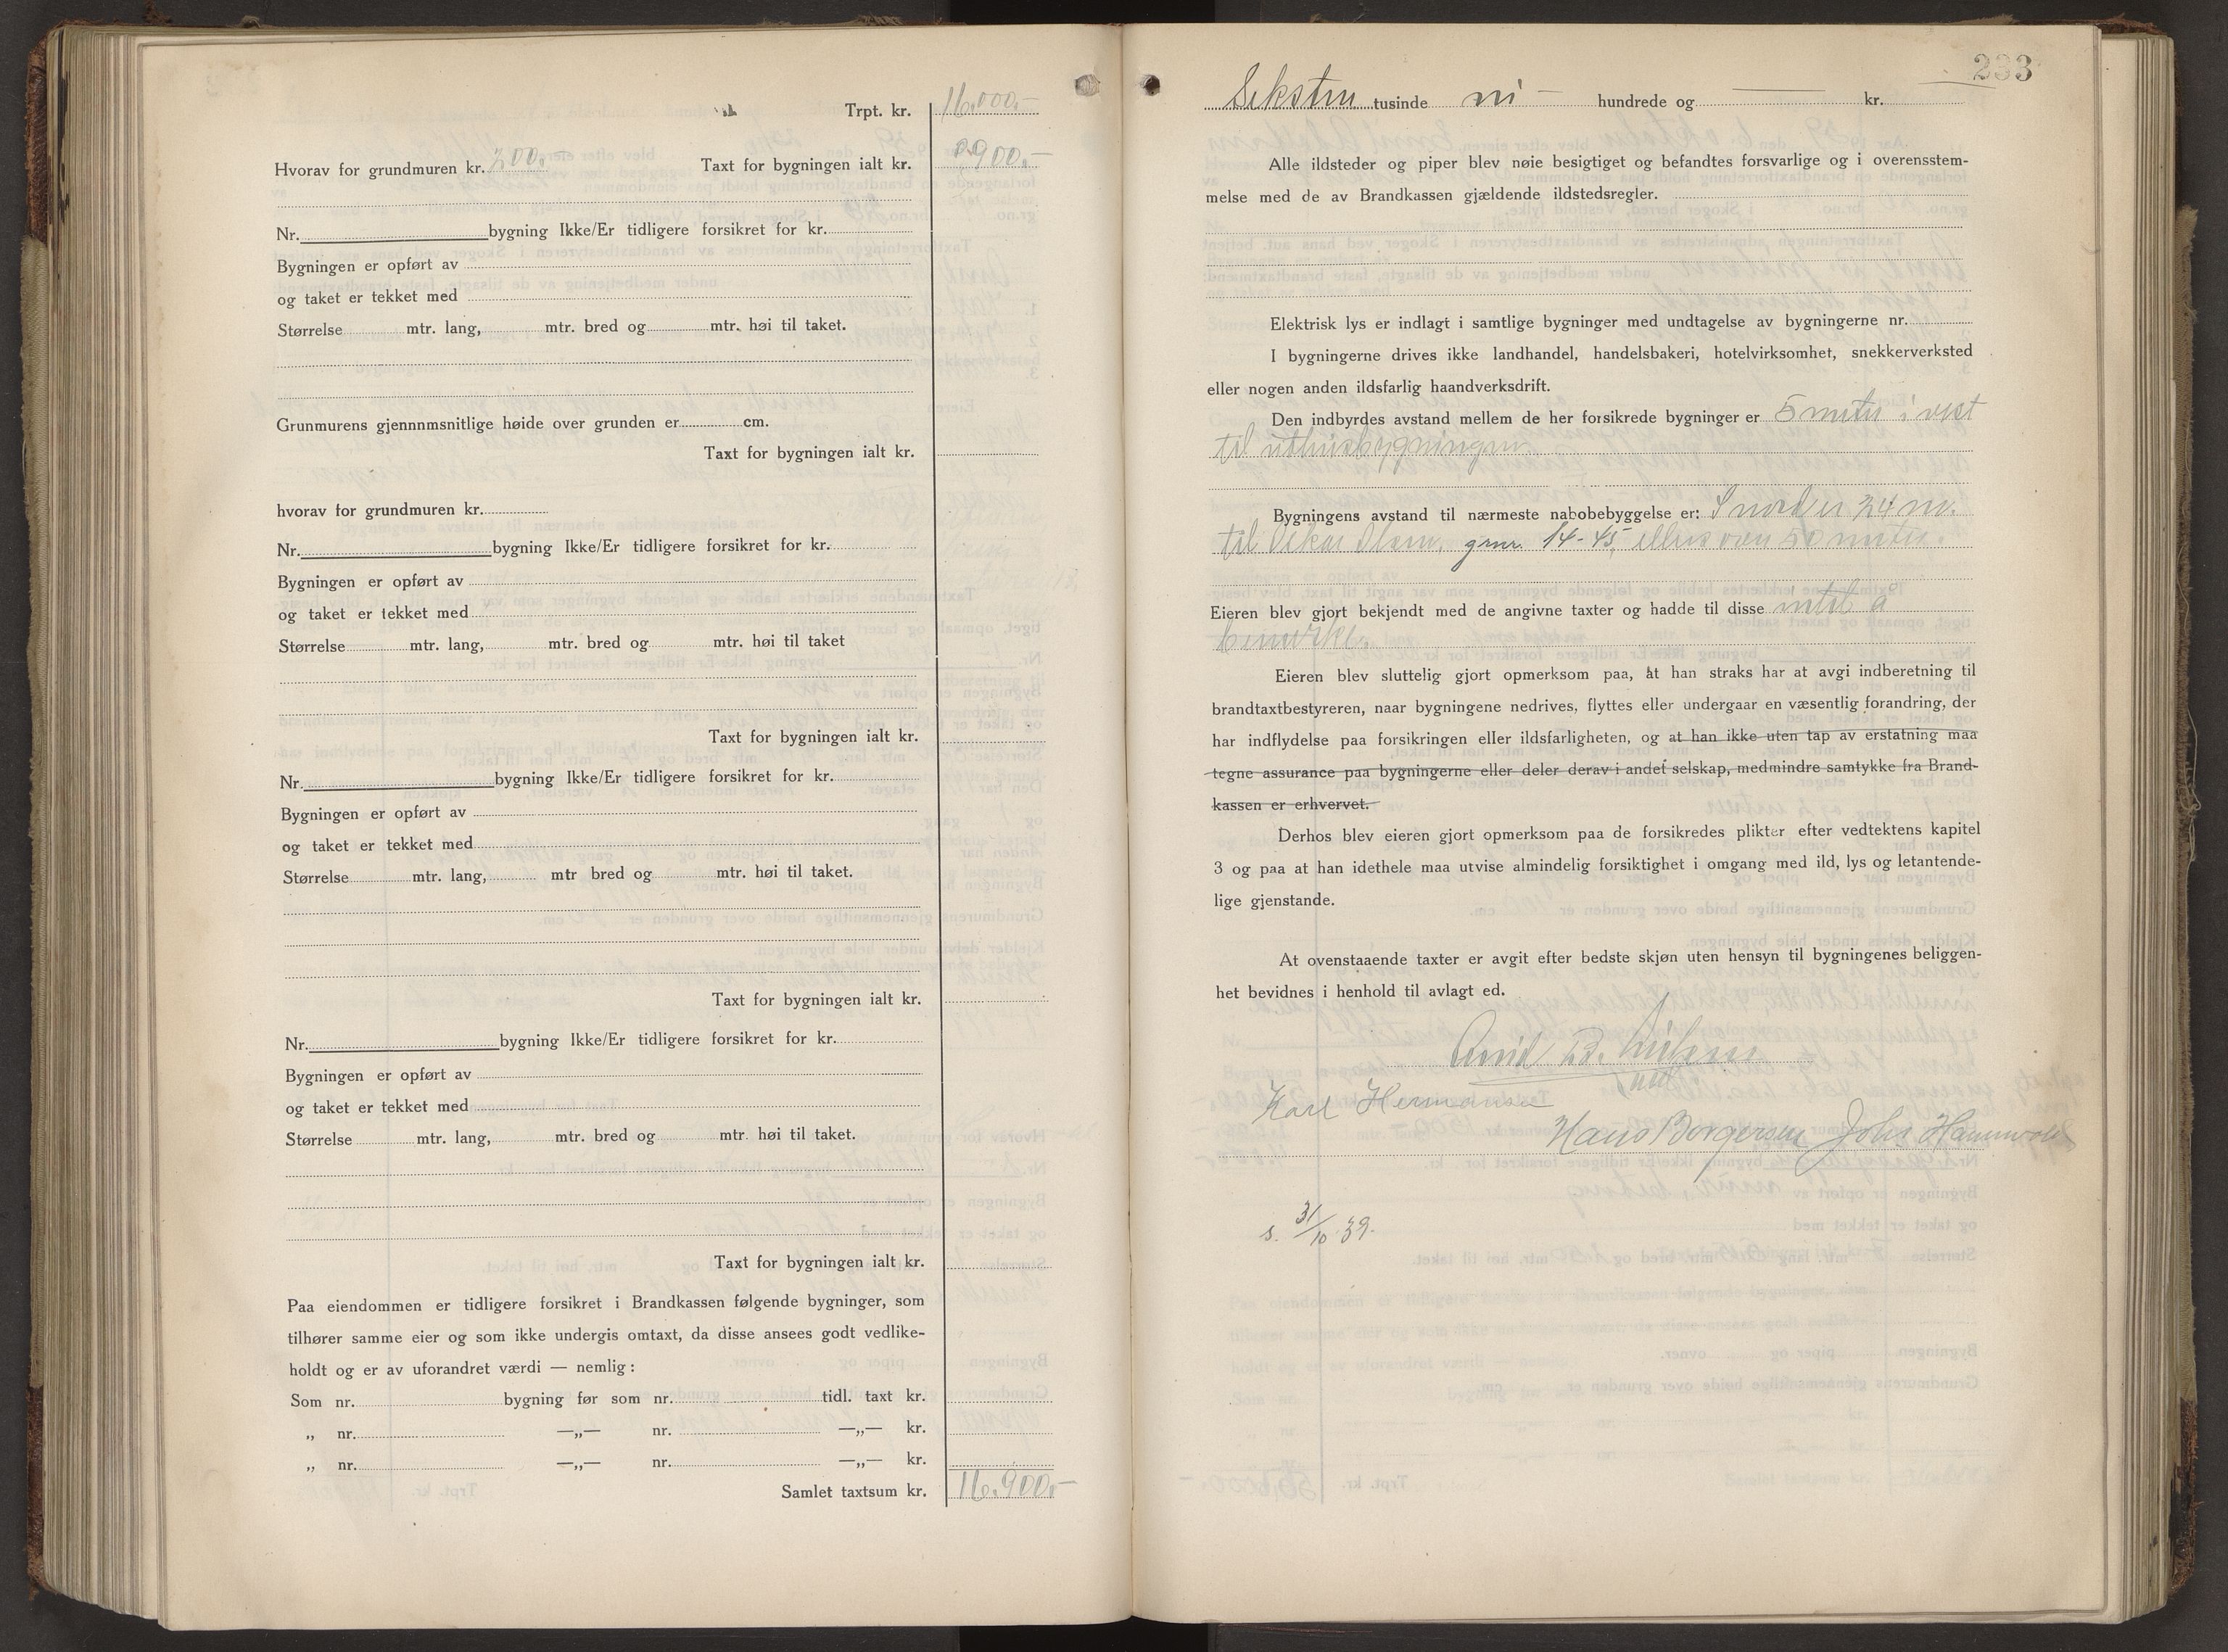 Trpt. kr. 16.000.-
Hvorav for grundmuren kr. 200.- Taxt for bygningen ialt kr. 900.-
Nr. bygning Ikke/Er tidligere forsikret for kr.
Bygningen er opført av
og taket er tekket med
Størrelse mtr. lang, mtr. bred og mtr. høi til taket.
Grunmurens gjennnmsnitlige høide over grunden er cm.
Taxt for bygningen ialt kr.
hvorav for grundmuren kr.
Nr. bygning Ikke/Er tidligere forsikret for kr.
Bygningen er opført av
og taket er tekket med
Størrelse mtr. lang, mtr. bred og mtr. høi til taket
Taxt for bygningen ialt kr.
Nr. bygning Ikke/Er tidligere forsikret for kr.
Bygningen er opført av
og taket er tekket med
Størrelse mtr. lang, mtr bred og mtr. høi til taket.
Taxt for bygningen ialt kr.
Nr. bygning Ikke/Er tidligere forsikret for kr.
Bygningen er opført av
og taket er tekket med
Størrelse mtr. lang, mtr. bred og mtr. høi til taket.
Taxt for bygningen ialt kr.
Paa eiendommen er tidligere forsikret i Brandkassen følgende bygninger, som
tilhører samme eier og som ikke undergis omtaxt, da disse ansees godt vedlike-
holdt og er av uforandret værdi — nemlig:
Som nr. bygning før som nr. tidl. taxt kr.
„ nr. —„— nr. —„— kr.
„ nr. —„— nr. —„— kr.
Samlet taxtsum kr. 16.900.-
233
Seksten tusinde ni - hundrede og — kr.
Alle ildsteder og piper blev nøie besigtiget og befandtes forsvarlige og i overensstem-
melse med de av Brandkassen gjældende ildstedsregler.
Elektrisk lys er indlagt i samtlige bygninger med undtagelse av bygningerne nr.
I bygningerne drives ikke landhandel, handelsbakeri, hotelvirksomhet, snekkerverksted
eller nogen anden ildsfarlig haandverksdrift.
Den indbyrdes avstand mellem de her forsikrede bygninger er 5 meter i vest
til uthusbygningen
Bygningens avstand til nærmeste nabobebyggelse er: I nord er 24 m.
til Oskar Olsen, gnr. 14-45, ellers over 50 meter.
Eieren blev gjort bekjendt med de angivne taxter og hadde til disse intet å
bemerke.
Eieren blev sluttelig gjort opmerksom paa, at han straks har at avgi indberetning til
brandtaxtbestyreren, naar bygningene nedrives, flyttes eller undergaar en væsentlig forandring, der
har indflydelse paa forsikringen eller ildsfarligheten, og at han ikke uten tap av erstatning maa
tegne assurance paa bygningerne eller deler derav i andet selskap, medmindre samtykke fra Brand-
kassen er erhvervet.
Derhos blev eieren gjort opmerksom paa de forsikredes plikter efter vedtektens kapitel
3 og paa at han idethele maa utvise almindelig forsiktighet i omgang med ild, lys og letantende-
lige gjenstande.
At ovenstaaende taxter er avgit efter bedste skjøn uten hensyn til bygningenes beliggen-
het bevidnes i henhold til avlagt ed.
Arvid B. Nilsen
Karl Hermansen
Hans Borgersen Johs Hannevold
s. 31/10 39.